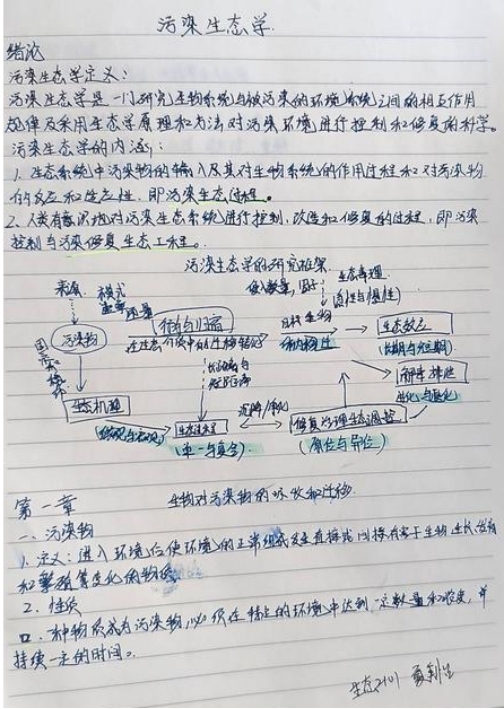 污染生态学
绪论
污染生态学定义:
污染生态学是一门研究生物系统与被污染的环境系统之间的相互作用
规律及采用生态学原理和方法对污染环境进行控制和修复的科学。
污染生态学的内涵:
1. 生态系统中污染物的输入及其对生物系统的作用过程和对污染物
的反应和适应性,即污染生态过程。
2. 人类有意识地对污染生态系统进行控制,改造和修复的过程,即污染
控制与污染修复生态工程。
污染生态学的研究框架
来源
模式
质量
生态毒理
(急性与慢性)
污染物
生物
生态效应
(长期与短期)
生态机理
(微观与宏观)
生态过程
(单一与复合)
修复治理生态调控
(原位与异位)
第一章
生物对污染物的吸收和迁移
一、污染物
1. 定义:进入环境后使环境的正常组成发生直接或间接有害于生物生长发育
和繁殖等变化的物质。
2. 性质
一种物质成为污染物,必须在特定的环境中达到一定数量和浓度,并
持续一定的时间。
生态